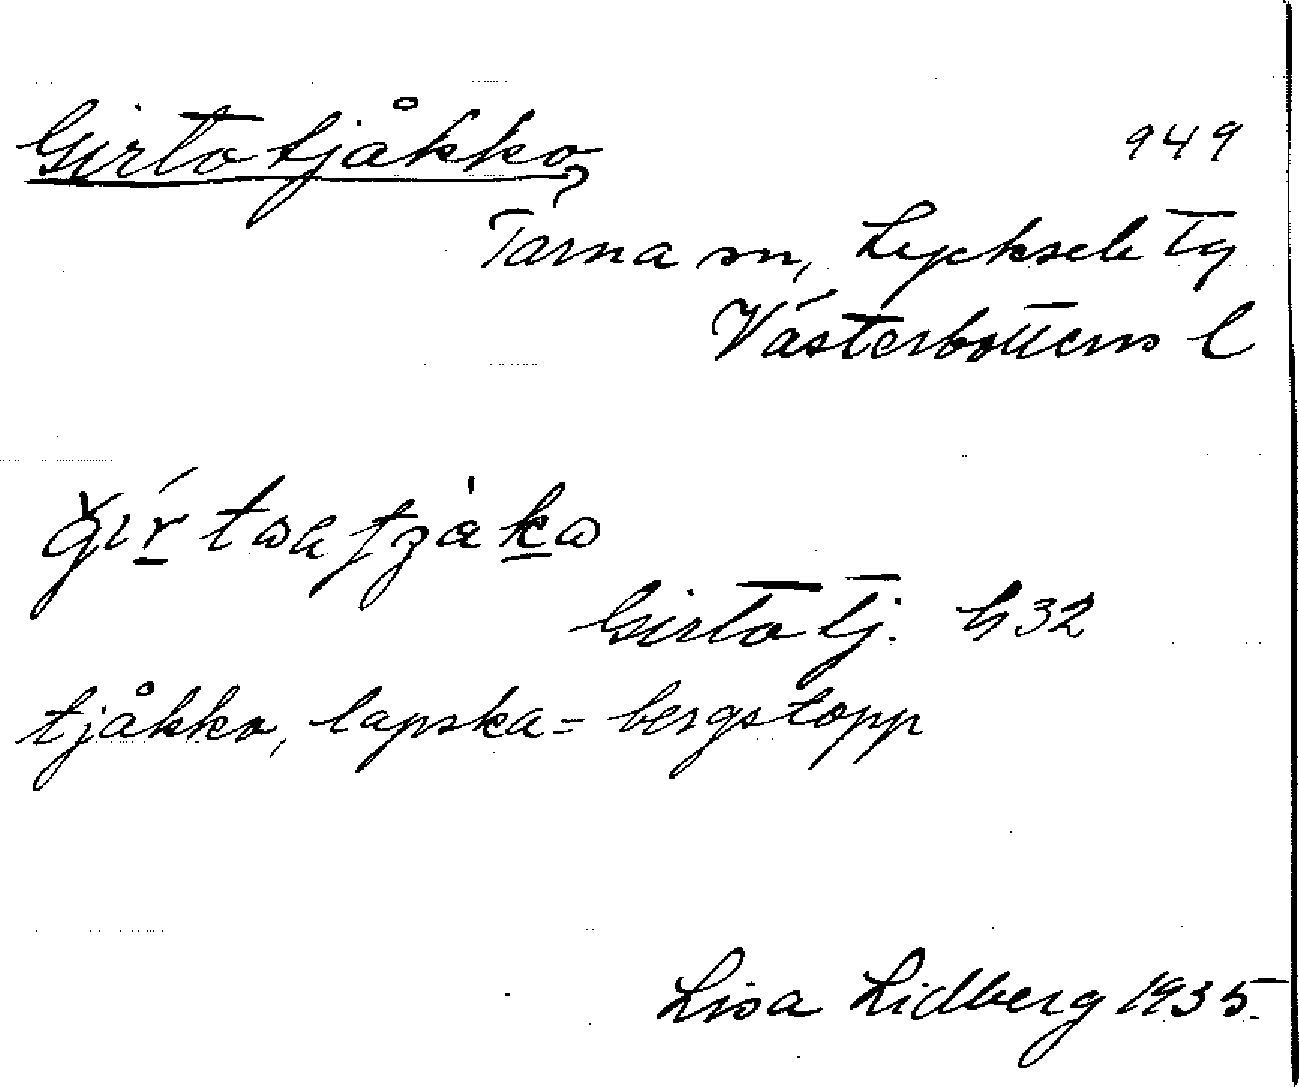 Girtotjåkko, 949
Tärna sn, Lycksele tg
Västerbottens l
Girto tj. h 32
tjåkko, lapska = bergstopp
Lisa Lidberg 1935.